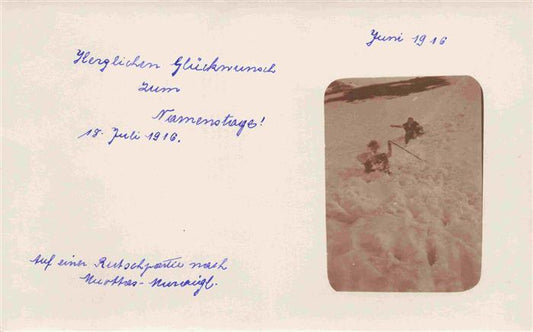 Herzlichen Glückwunsch
zum
Namenstage!
18. Juli 1916.
Juni 1916
Auf einer Rutschpartie nach
Muottas-Muraigl.